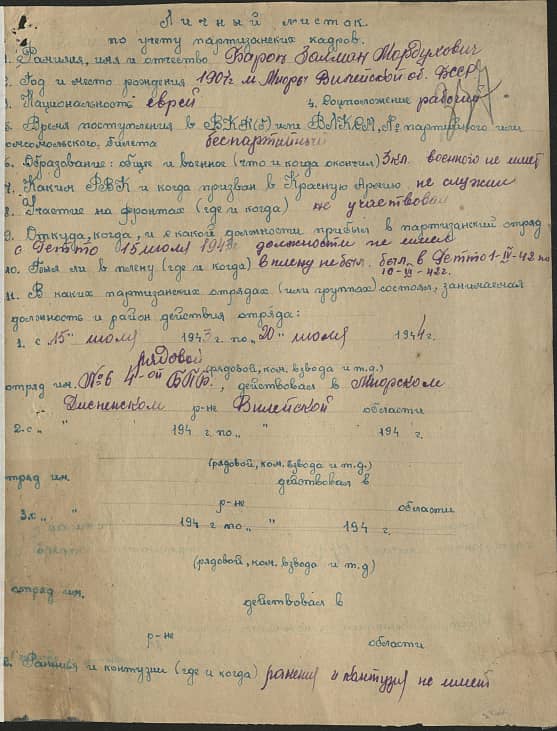 Личный листок
по учету партизанских кадров.
1. Фамилия, имя и отчество Барон Залман Мордухович
2. Год и место рождения 1907 г. м. Миоры Вилейской об. БССР
3. Национальность еврей 4. Соцположение рабочий
5. Время поступления в ВКП(б) или ВЛКСМ, № партийного или
комсомольского билета беспартийный
6. Образование: общее и военное (что и когда окончил) 3 кл. военного не имет
7. Каким РВК и когда призван в Красную Армию не служил
8. Участие на фронтах (где и когда) не участвовал
9. Откуда, когда, и в какой должности прибыл в партизанский отряд
с Гетто 15 июля 1943 г. должности не имел
10. Был ли в плену (где и когда) в плену не был. был в Гетто 1-IV-42 по
10-VI-42 г.
11. В каких партизанских отрядах (или группах) состоял, занимаемая
должность и район действия отряда:
1. с "15" июля 1943 г. по "20" июля 1944 г.
рядовой
(рядовой, ком. взвода и т.д.)
отряд им. № 6 4-ой БПБ., действовал в Миорском
Дисненском р-не Вилейской области
2. с " " 194 г. по " " 194 г.
(рядовой, ком. взвода и т.д.)
отряд им. действовал в
р-не области
3. с " " 194 г. по " " 194 г.
(рядовой, ком. взвода и т.д)
отряд им. действовал в
р-не области
Ранения и контузии (где и когда) ранения и контузия не имет